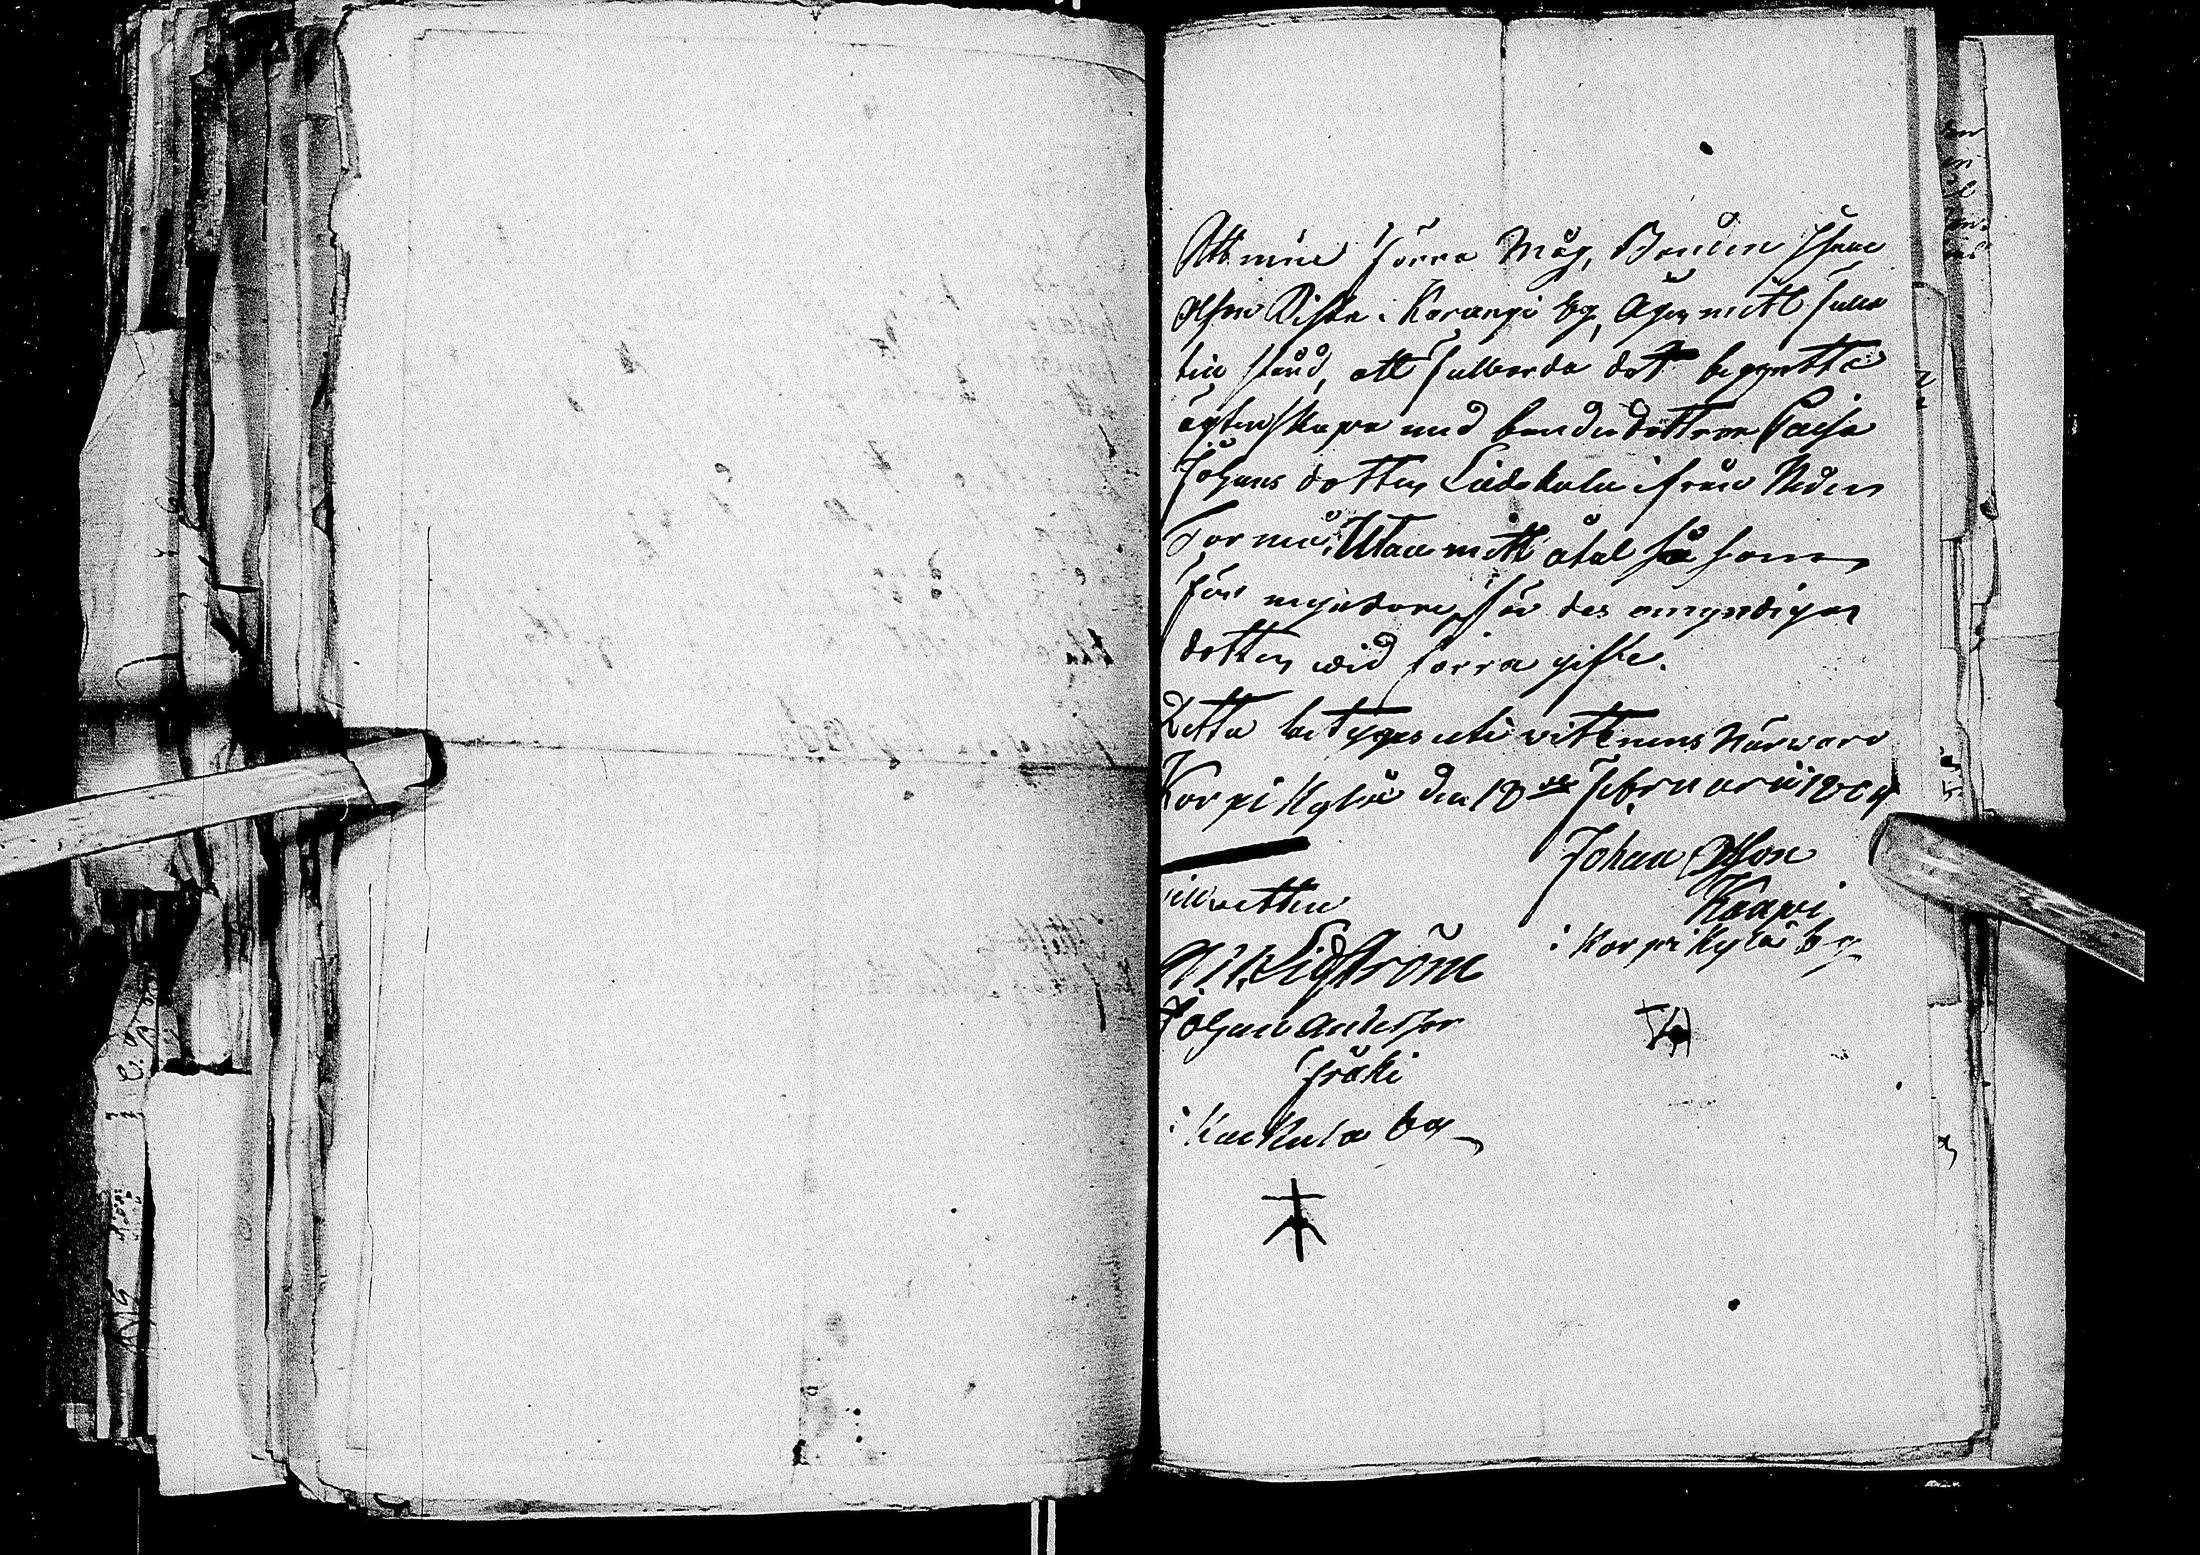 Att min förra Måg, Bonden Isac
Olsson Niska i Karungi by, Äger mitt fulla
till stånd, att fullborda det begyntta
ägtenskapa med bondedottren Caisa
Johans dotter Liedokola ifrån Neder
Torniå, Utan mitt åtal så som
för myndare för des omyndiga
dotter wid förra gifte.
Detta betygas uti vittnens Närwaro
Korpikylä den 18de Februarii 1804
Johan Olsson
Kaapi
i Korpikylä by
till vittne
Lidström
Johan Andersson
Fräki
i Kuckula by